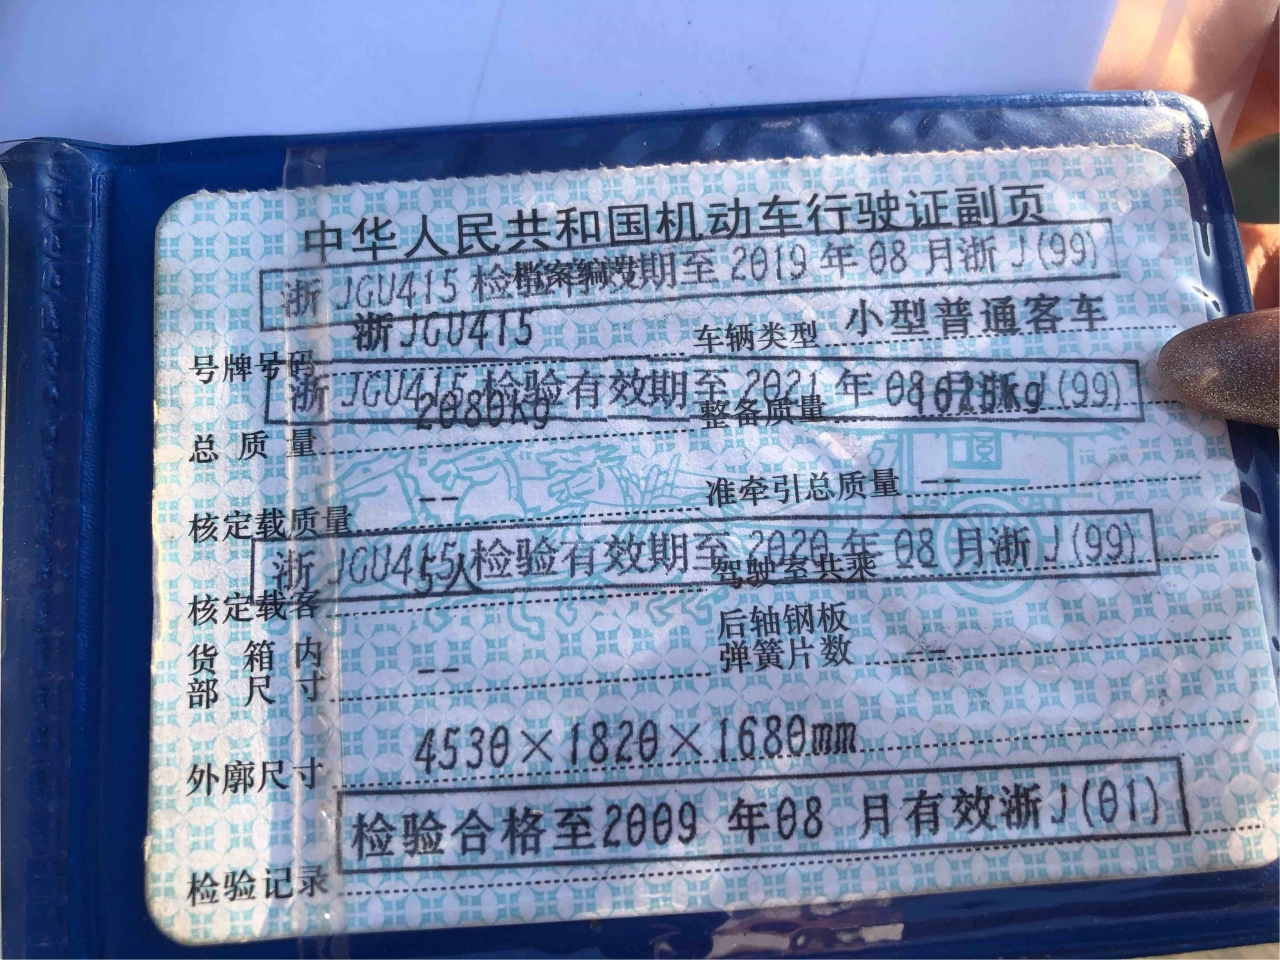 中华人民共和国机动车行驶证副页
浙 JGU415 检验有效期至 2019 年 08 月浙 J(99)
号牌号码 浙JGU415 车辆类型 小型普通客车
浙 JGU415 检验有效期至 2021 年 08月浙 J(99)
总质量 2080kg 整备质量
核定载质量 -- 准牵引总质量 --
浙 JGU415 检验有效期至 2020 年 08 月浙 J(99)
核定载客 5人 驾驶室共乘
货箱内部尺寸 -- 后轴钢板弹簧片数 --
外廓尺寸 4530×1820×1680mm
检验合格至2009 年08 月有效浙J(01)
检验记录